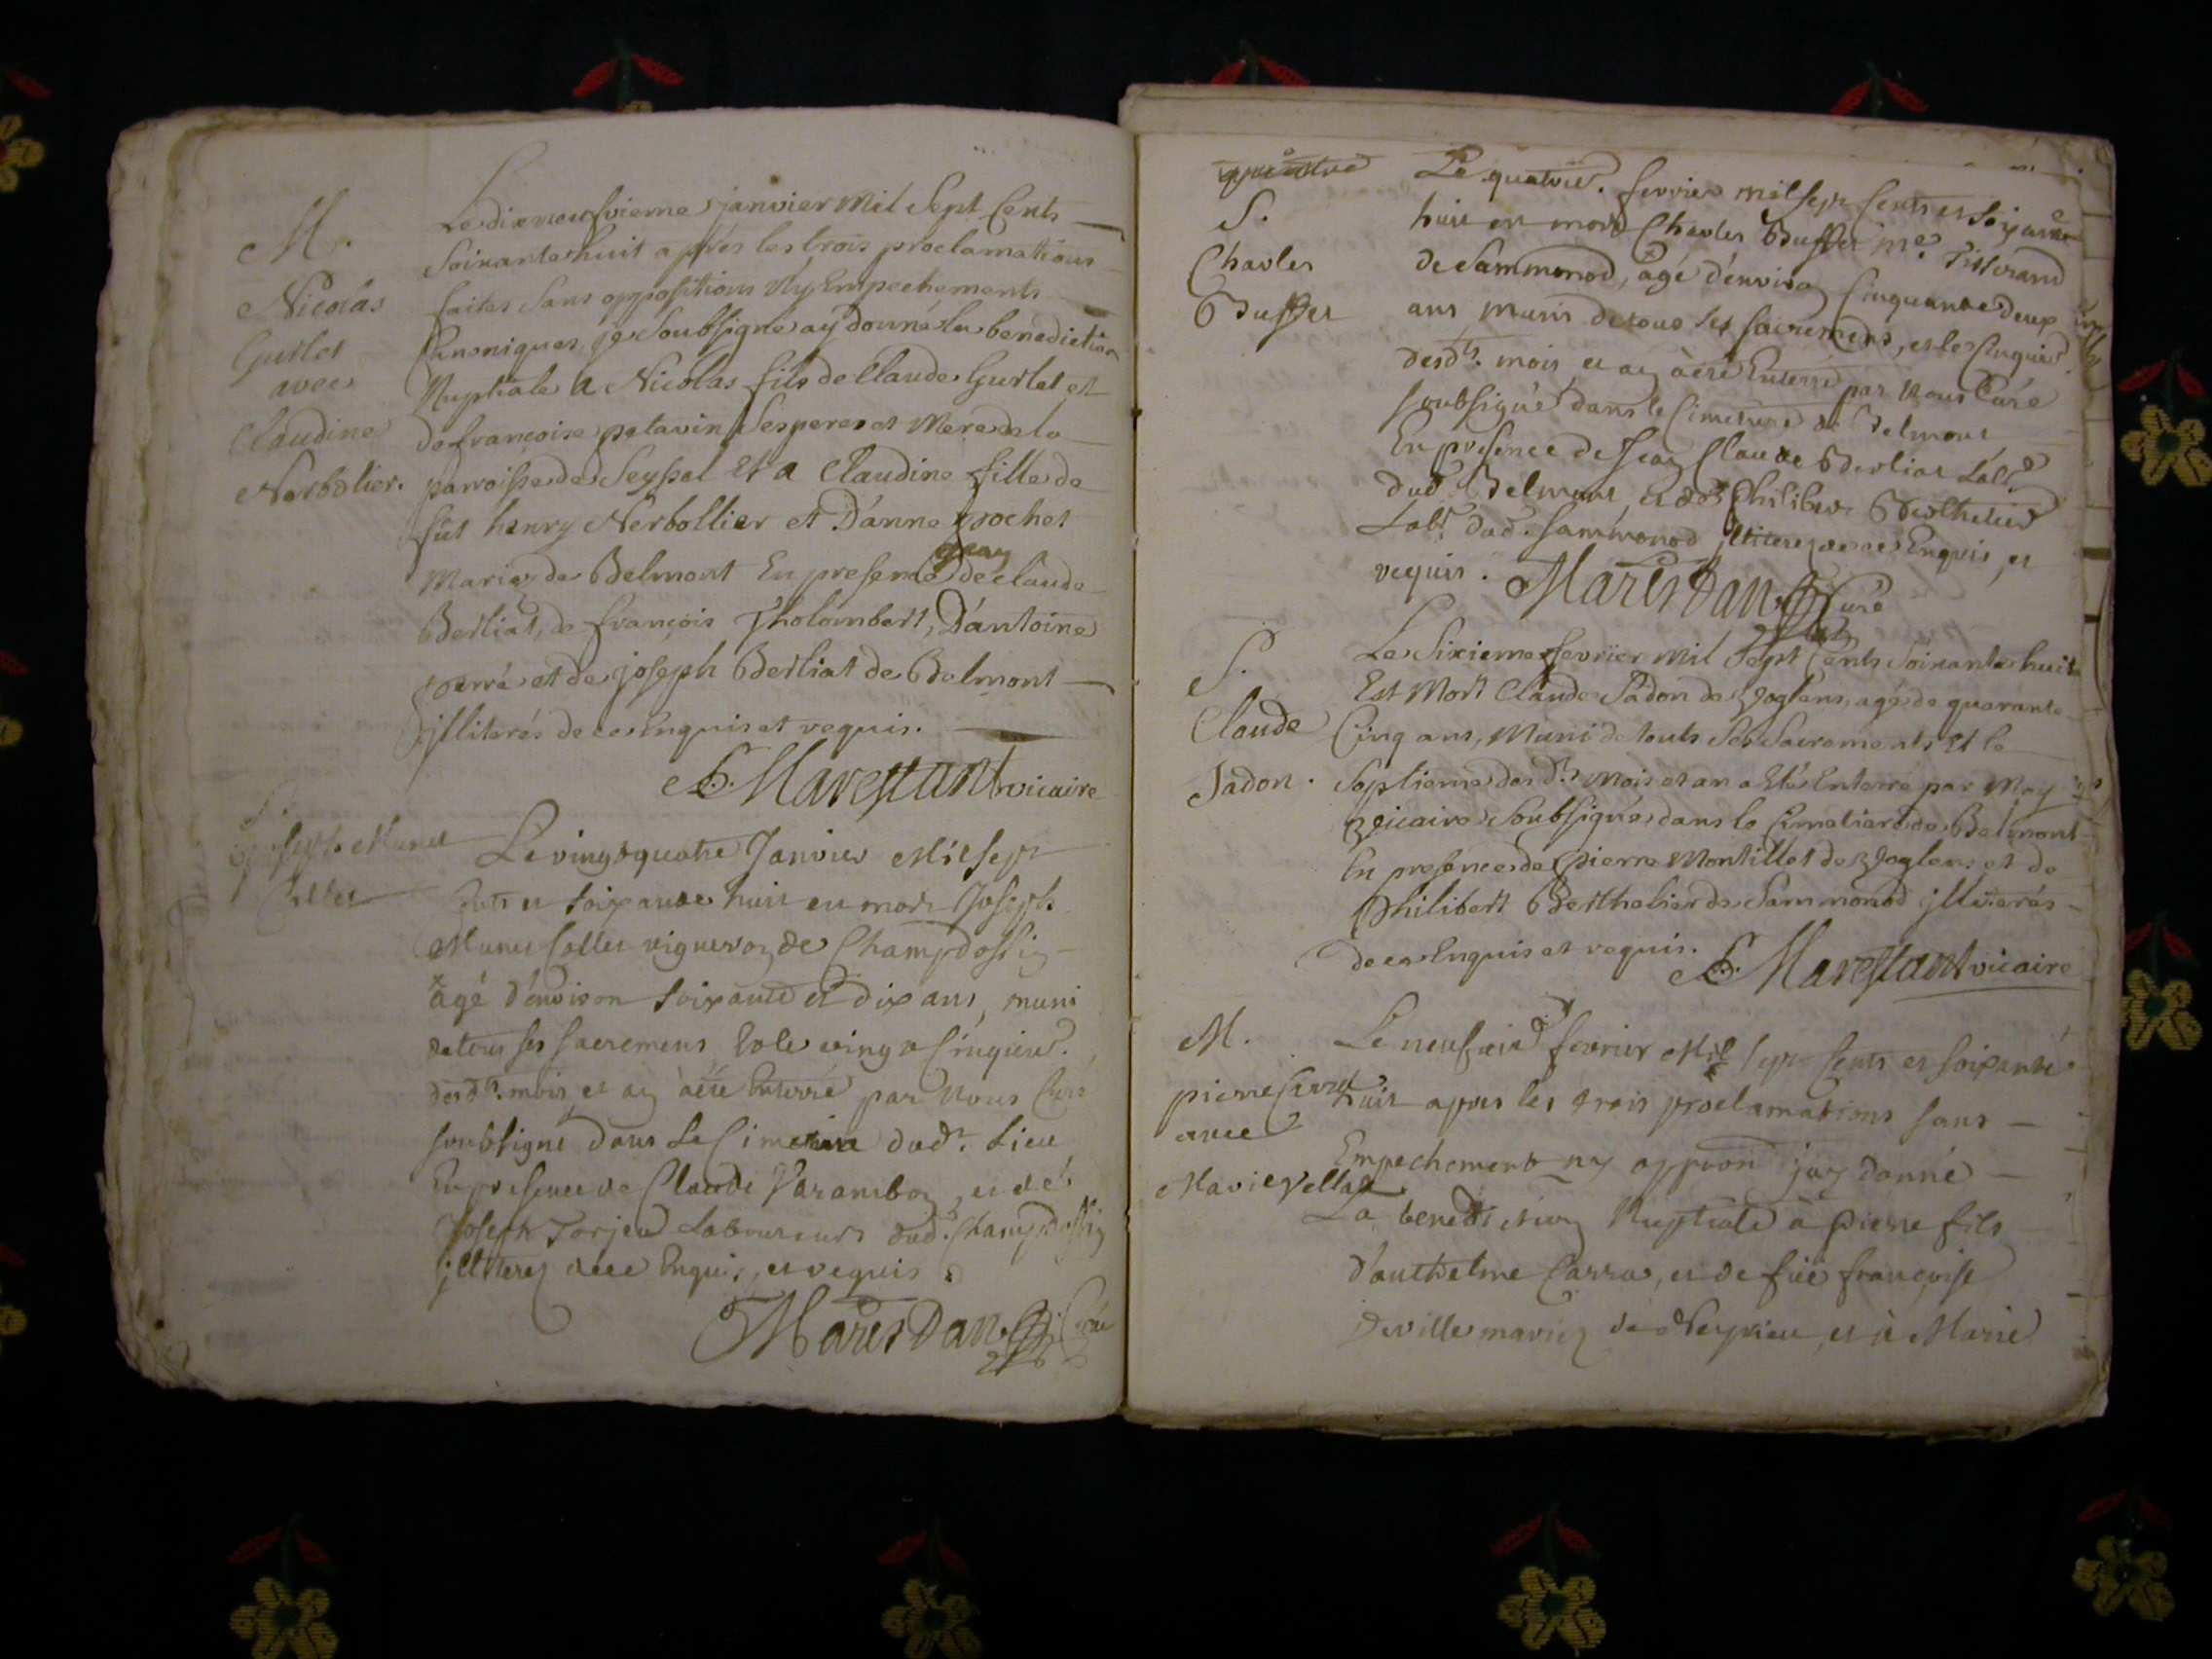 M.
Nicolas
Gurlet
avec
Claudine
Nerbolier.
Le dixneusvieme janvier Mil Sept Cents
Soixante huit apres les trois proclamations
faites Sans oppositions Ny Empechements
Canoniques, je Soubsigné ay donné la bénédiction
Nuptiale a Nicolas fils de Claude Gurlet et
de françoise patavin Ses peres et Mere de la
parroisse de Seyssel Et a Claudine fille de
fût henry Nerbollier et D'anne pochet
Mariez de Belmont En presence de claude
Berliat, de françois Tholombert, D'antoine
perré et de joseph Berliat de Belmont
jlliterés de ce Enquis et requis.
Marestant vicaire
S.
Joseph Munet
Collet
Le vingt quatre Janvier Mil Sept
Cents et soixante huit est mort Joseph
Munet Collet vigneron de Champdossin
agé d'environ soixante et dix ans, muni
de tous ses sacremens Et le vingt Cinquie.
desdts. mois et an à été Enterré par Nous Curé
soubsigné dans Le Cimetiere dudt. Lieu
En presence de Claude Varambon, et de
Joseph Torjeu Laboureurs dud. Champdossin
jlliterez de ce Enquis, et requis
Marestan Curé
S.
Charles
Buffet
Le quatrie. fevrier mil sept Cents et soixante
huit est mort Charles Buffet me. Tisserand
de Sammonod, agé d'environ Cinquante deux
ans muni de tous ses sacremens, et le Cinquie.
desdts. mois et an à été Enterré par Nous Curé
soubsigné dans le Cimetiere de Belmont
En presence de Jean Claude Berliat Labr.
dud. Belmont, et de Philibert Berthelier
Labr. dud. Sammonod jlliterez de ce Enquis, et
requis. Marestan Curé
S.
Claude
Jadon.
Le Sixieme fevrier Mil Sept Cents Soixante huit
Est Mort Claude Jadon de Voglens, agé de quarante
Cinq ans, Muni de touts Ses Sacrements Et le
Septieme des dts Mois et an a Eté Enterré par Moy
Vicaire Soubsigné dans le Cimetiere de Belmont
En presence de pierre Montillet de Voglens et de
Philibert Berthelier de Sammonod jlliterés
de ce Enquis et requis. Marestant vicaire
M.
pierre Carra
avec
Marie Vellat
Le neufvie. fevrier Mil sept Cents et soixante
huit apres les trois proclamations sans
Empechement ny oppon. j'ay donné
La benediction Nuptiale à Pierre fils
d'anthelme Carra, et de füe françoise
Deville mariez de Neyrieu, et à Marie